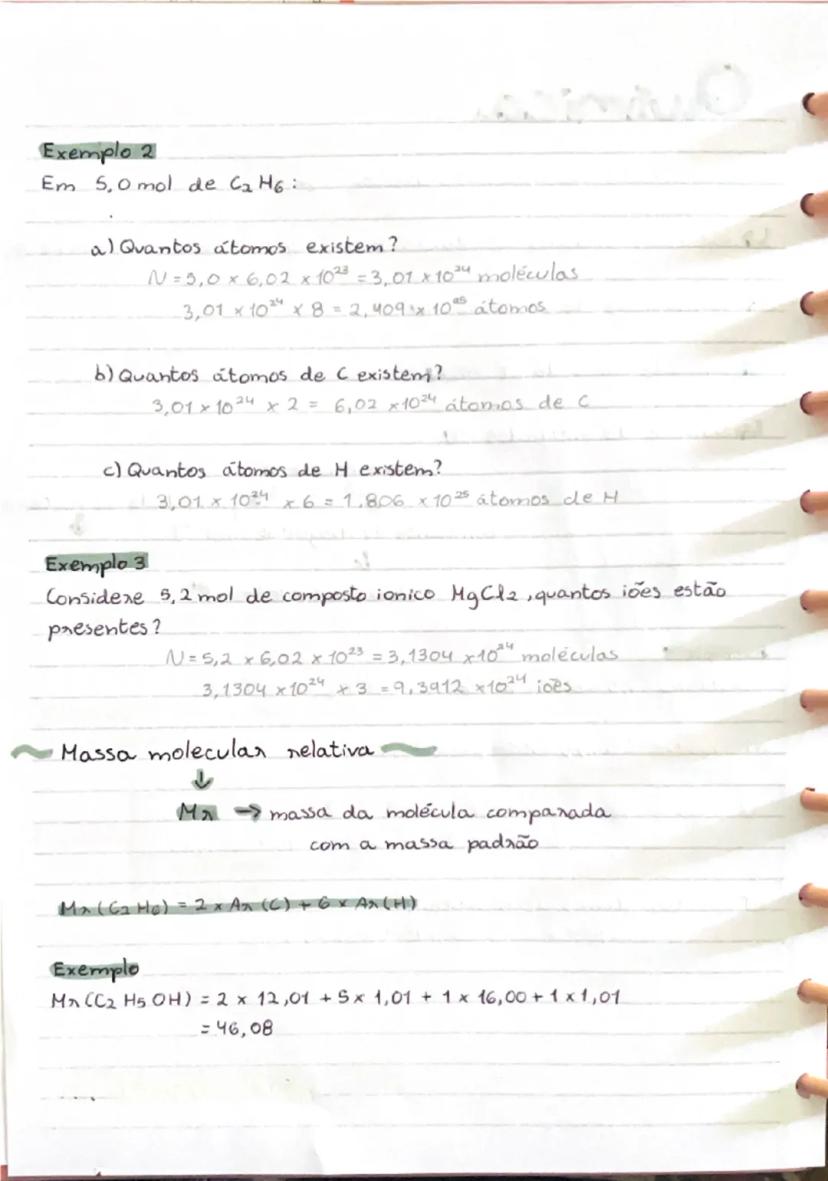 Exemplo 2
Em 5,0 mol de C₂H₆:
a) Quantos átomos existem?
N = 5,0 × 6,02 × 10²³ = 3,01 × 10²⁴ moléculas
3,01 × 10²⁴ × 8 = 2,409 × 10²⁵ átomos
b) Quantos átomos de C existem?
3,01 × 10²⁴ × 2 = 6,02 × 10²⁴ átomos de C
c) Quantos átomos de H existem?
3,01 × 10²⁴ × 6 = 1,806 × 10²⁵ átomos de H
Exemplo 3
Considere 5,2 mol de composto ionico MgCl₂, quantos iões estão
presentes?
N = 5,2 × 6,02 × 10²³ = 3,1304 × 10²⁴ moléculas
3,1304 × 10²⁴ × 3 = 9,3912 × 10²⁴ iões
~ Massa molecular relativa ~
↓
Mr → massa da molécula comparada
com a massa padrão
Mr (C₂H₆) = 2 × Ar (C) + 6 × Ar (H)
Exemplo
Mr (C₂H₅OH) = 2 × 12,01 + 5 × 1,01 + 1 × 16,00 + 1 × 1,01
= 46,08